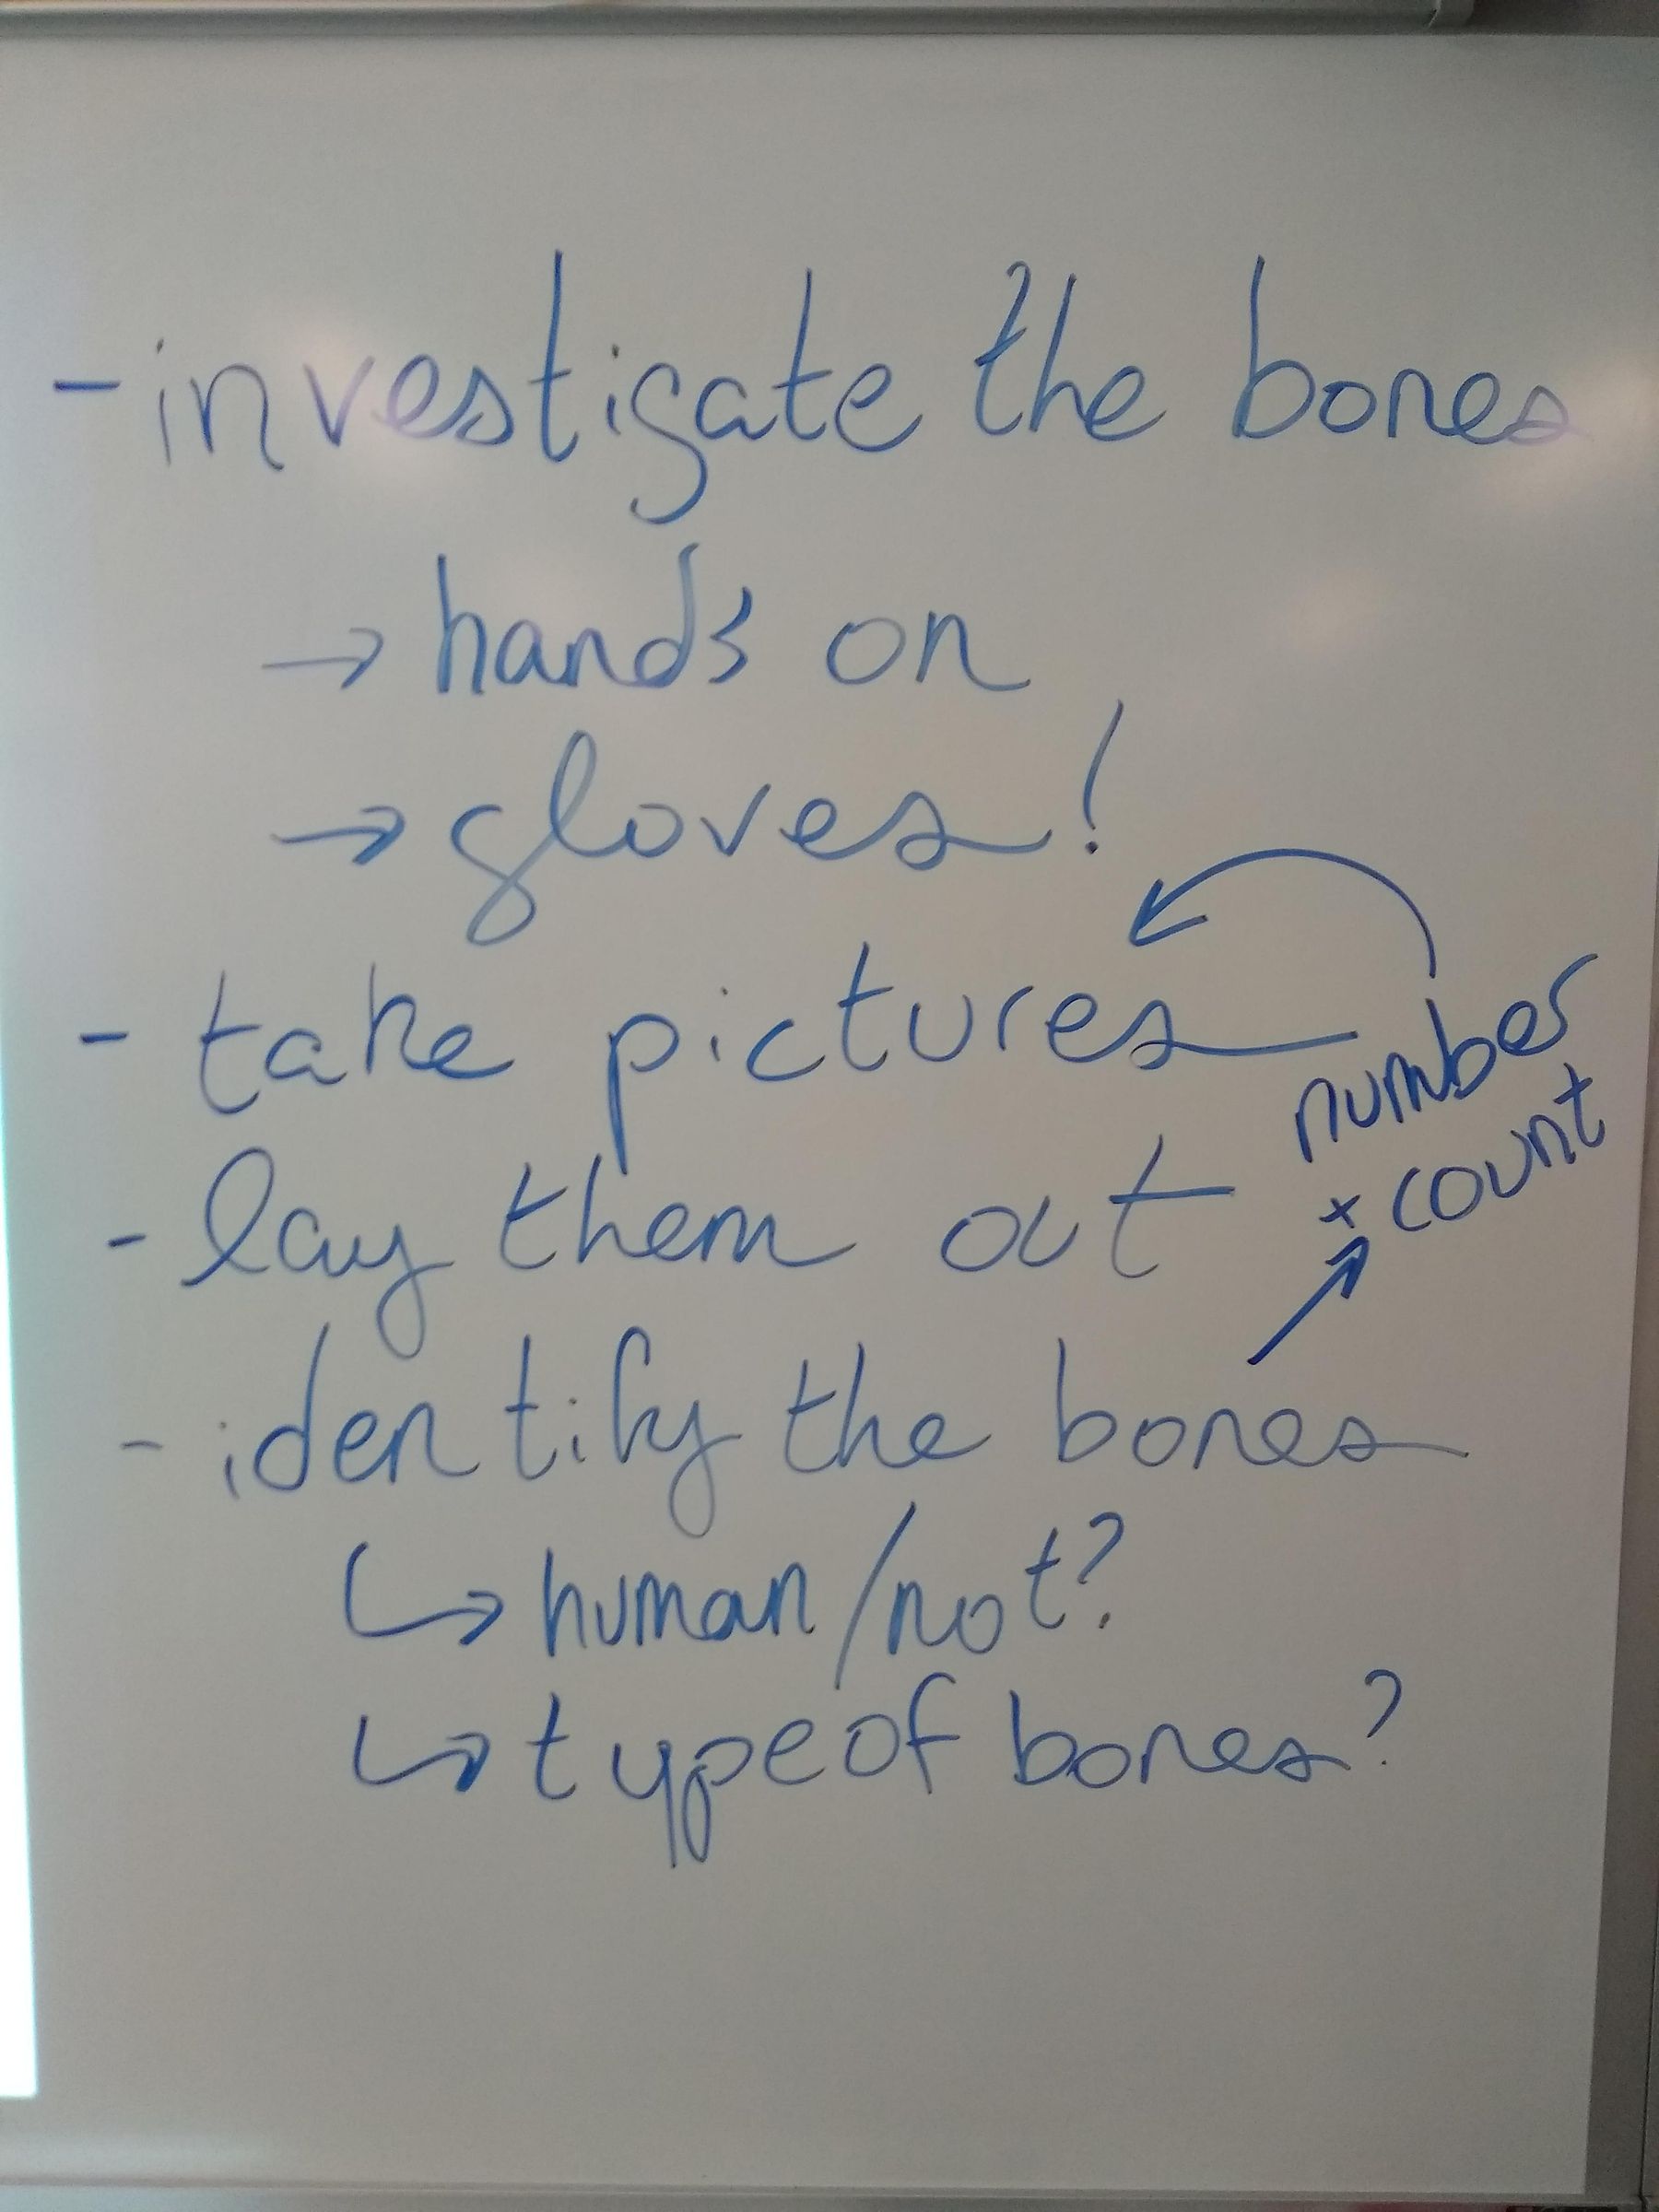 - investigate the bones
→ hands on
→ gloves!
- take pictures
number
+ count
- lay them out
- identify the bones
↳ human/not?
↳ type of bones?